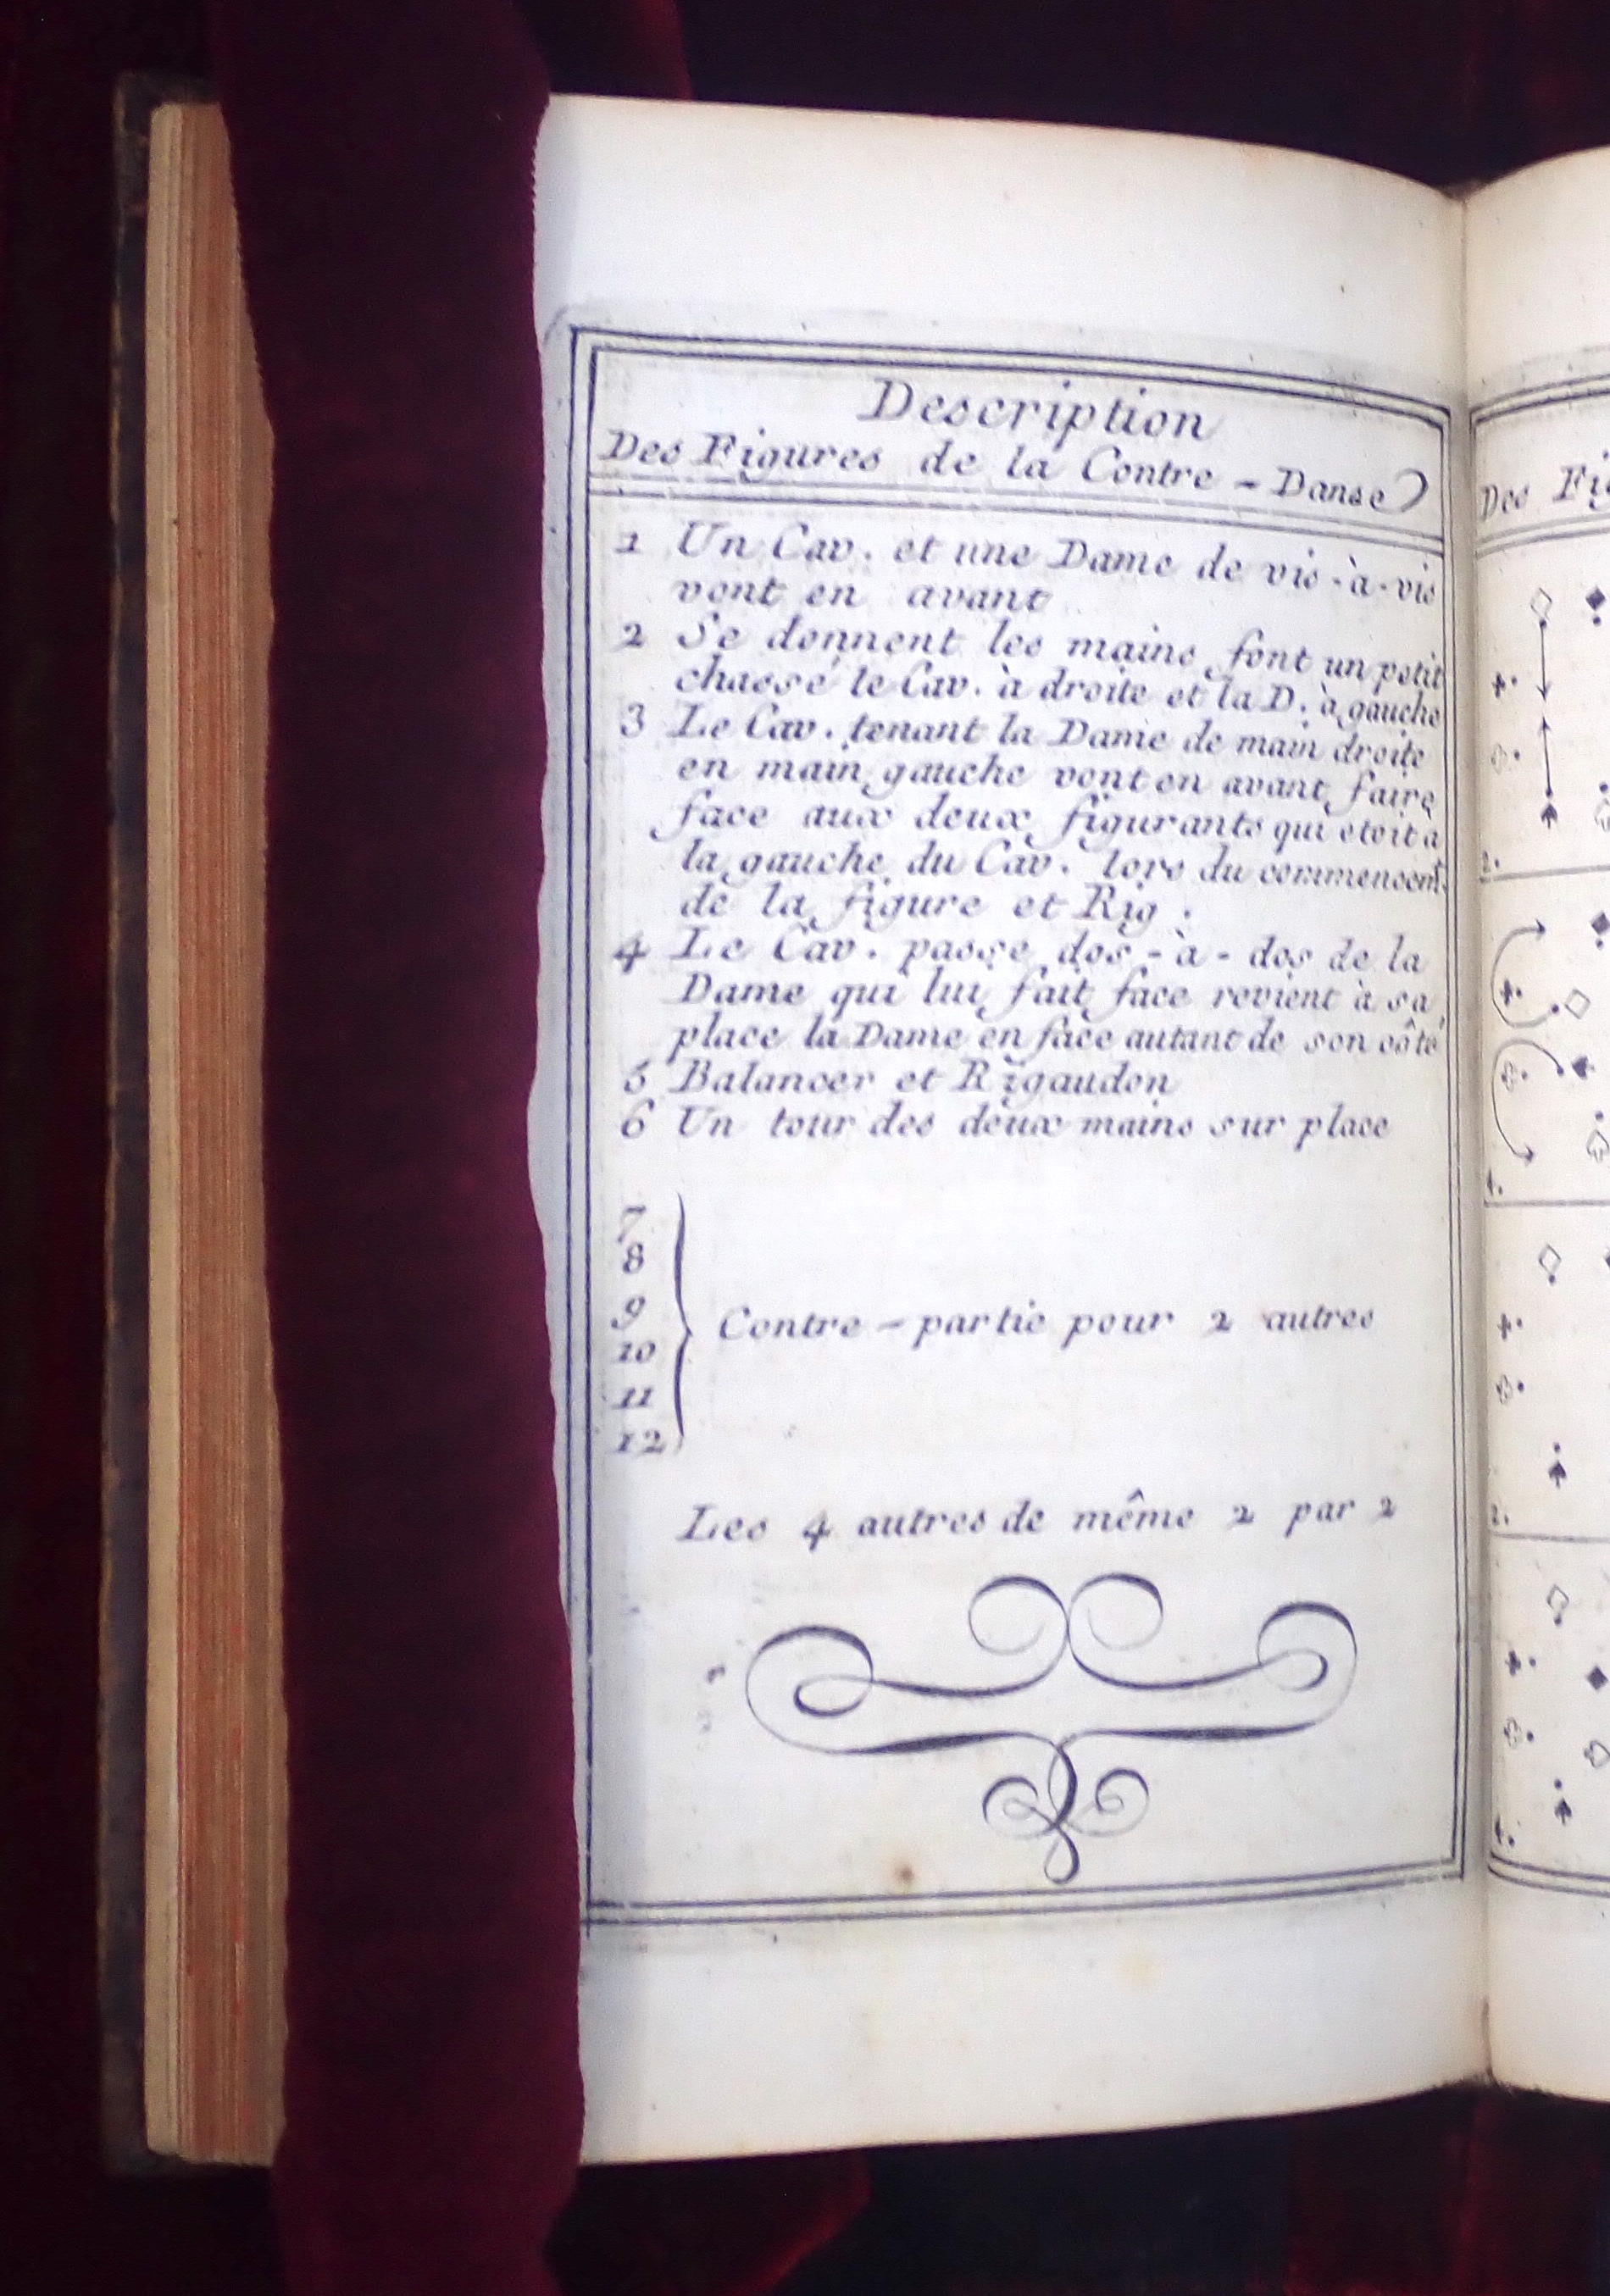 Description
Des Figures de la Contre - Danse
1 Un Cav. et une Dame de vis-à-vis
vont en avant
2 Se donnent les mains font un petit
chassé le Cav. à droite et la D. à gauche
3 Le Cav. tenant la Dame de main droite
en main gauche vont en avant faire
face aux deux figurants qui etoit a
la gauche du Cav. lors du commencemt.
de la figure et Rig.
4 Le Cav. passe dos-à-dos de la
Dame qui lui fait face revient à sa
place la Dame en face autant de son côté
5 Balancer et Rigaudon
6 Un tour des deux mains sur place
7
8
9
10
11
12
Contre-partie pour 2 autres
Les 4 autres de même 2 par 2
Des Fi
2.
4.
2.
4.